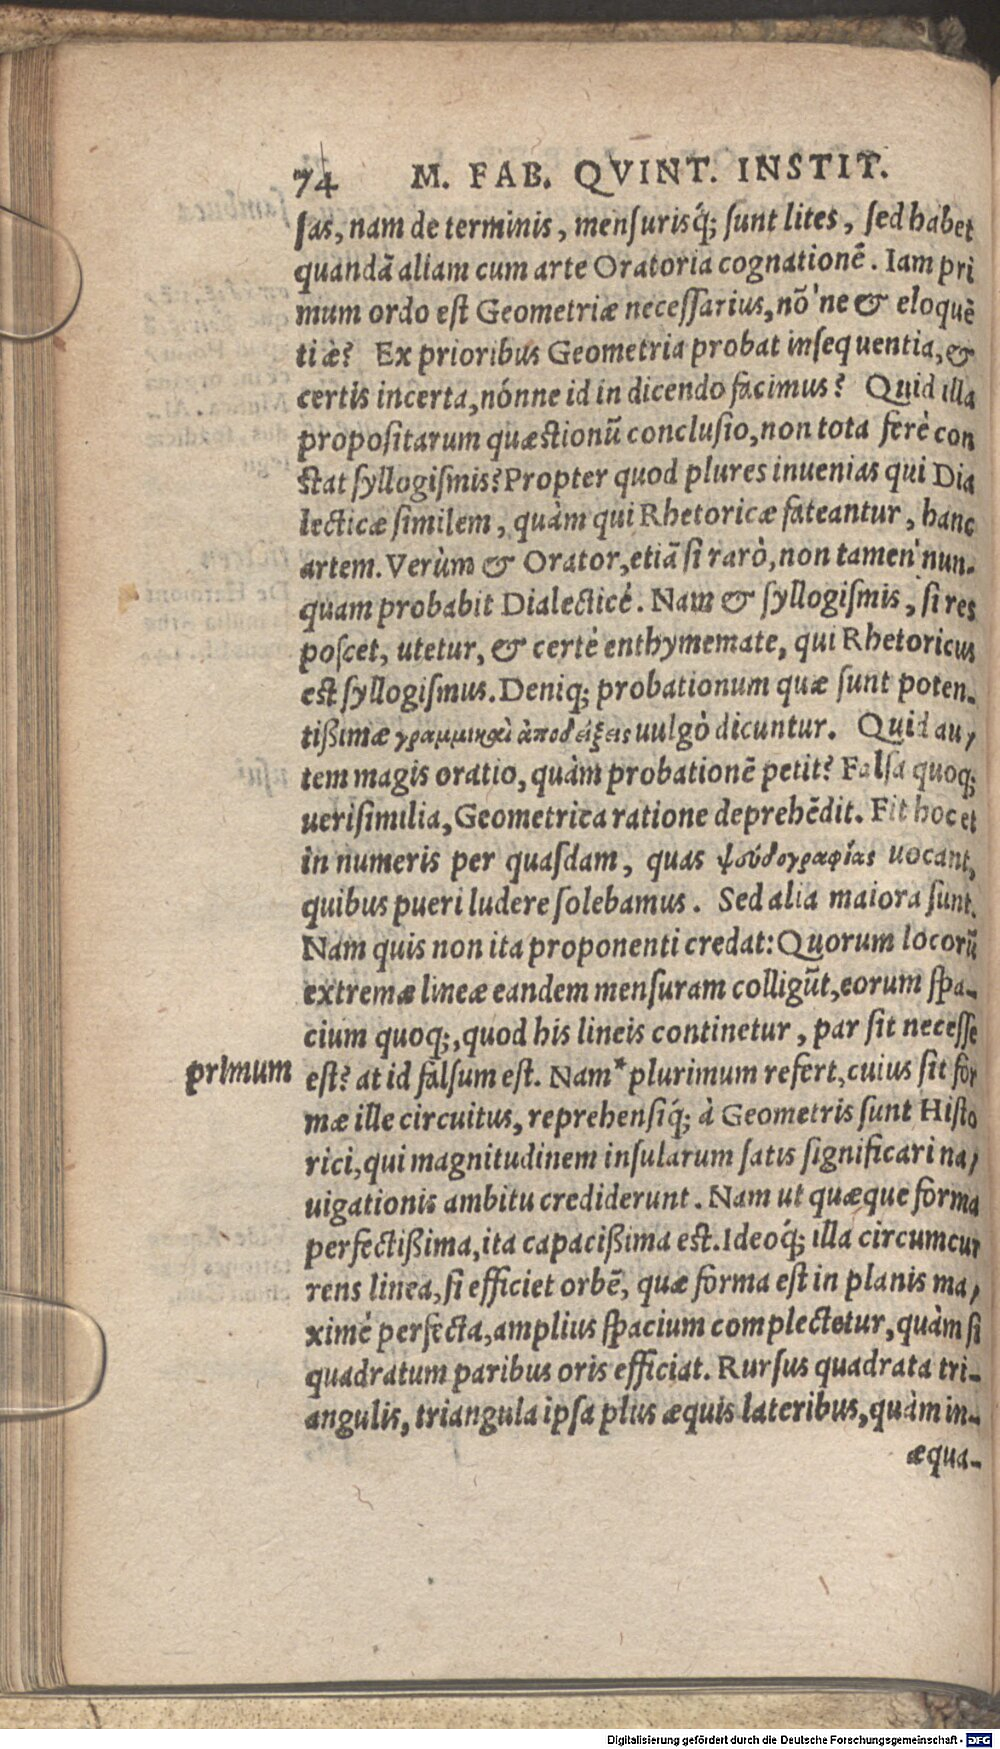 74 M. FAB. QVINT. INSTIT.
sas, nam de terminis, mensurisq́; sunt lites, sed habet
quandā aliam cum arte Oratoria cognationē. Iam pri
mum ordo est Geometriæ necessarius, nō'ne & eloquē
tiæ? Ex prioribus Geometria probat insequentia, &
certis incerta, nónne id in dicendo facimus? Quid illa
propositarum quæstionū conclusio, non tota ferè con
stat syllogismis? Propter quod plures inuenias qui Dia
lecticæ similem, quàm qui Rhetoricæ fateantur, hanc
artem. Verùm & Orator, etiā si rarò, non tamen nun-
quam probabit Dialecticé. Nam & syllogismis, si res
poscet, utetur, & certè enthymemate, qui Rhetoricus
est syllogismus. Deniq; probationum quæ sunt poten-
tißimæ γραμμικαὶ ἀποδείξεις uulgò dicuntur. Quid au,
tem magis oratio, quàm probationē petit? Falsa quoq;
uerisimilia, Geometrica ratione deprehēdit. Fit hoc et
in numeris per quasdam, quas ψευδογραφίας uocant,
quibus pueri ludere solebamus. Sed alia maiora sunt.
Nam quis non ita proponenti credat: Quorum locorū
extremæ lineæ eandem mensuram colligūt, eorum spa-
cium quoq;, quod his lineis continetur, par sit necesse
primum est? at id falsum est. Nam* plurimum refert, cuius sit for
mæ ille circuitus, reprehensiq́; à Geometris sunt Histo
rici, qui magnitudinem insularum satis significari na,
uigationis ambitu crediderunt. Nam ut quæque forma
perfectißima, ita capacißima est. Ideoq́; illa circumcur
rens linea, si efficiet orbē, quæ forma est in planis ma,
ximé perfecta, amplius spacium complectetur, quàm si
quadratum paribus oris efficiat. Rursus quadrata tri-
angulis, triangula ipsa plus æquis lateribus, quàm in-
æqua-
Digitalisierung gefördert durch die Deutsche Forschungsgemeinschaft - DFG